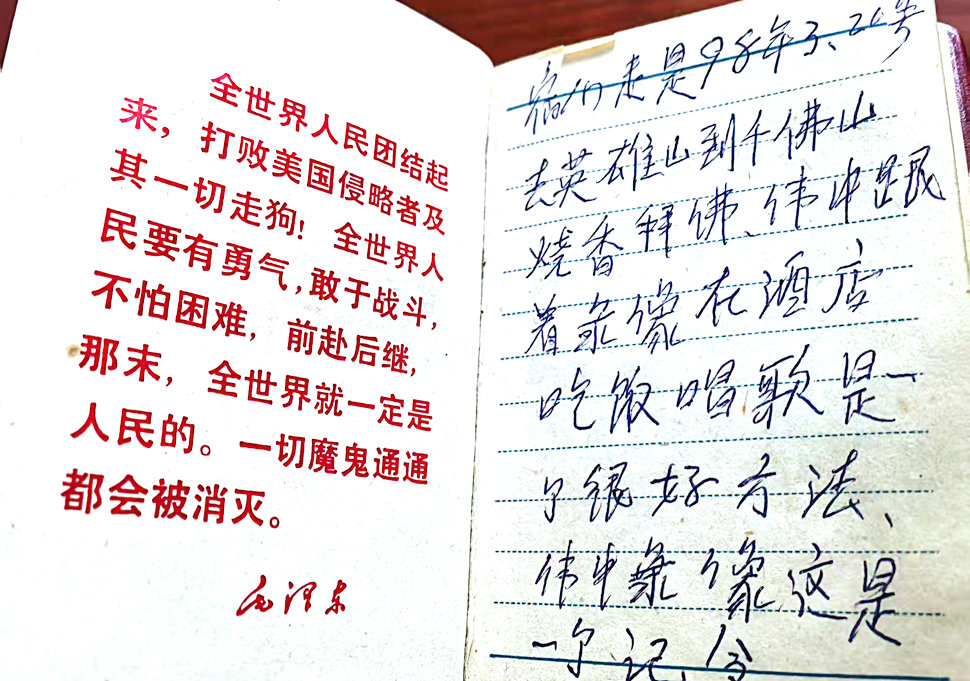 全世界人民团结起
来，打败美国侵略者及
其一切走狗！全世界人
民要有勇气，敢于战斗，
不怕困难，前赴后继，
那末，全世界就一定是
人民的。一切魔鬼通通
都会被消灭。
毛泽东
们走是98年3、26号
去英雄山到千佛山
烧香拜佛、伟中跟
着录像在酒店
吃饭唱歌是一
个很好方法、
伟中录像这是
一个记